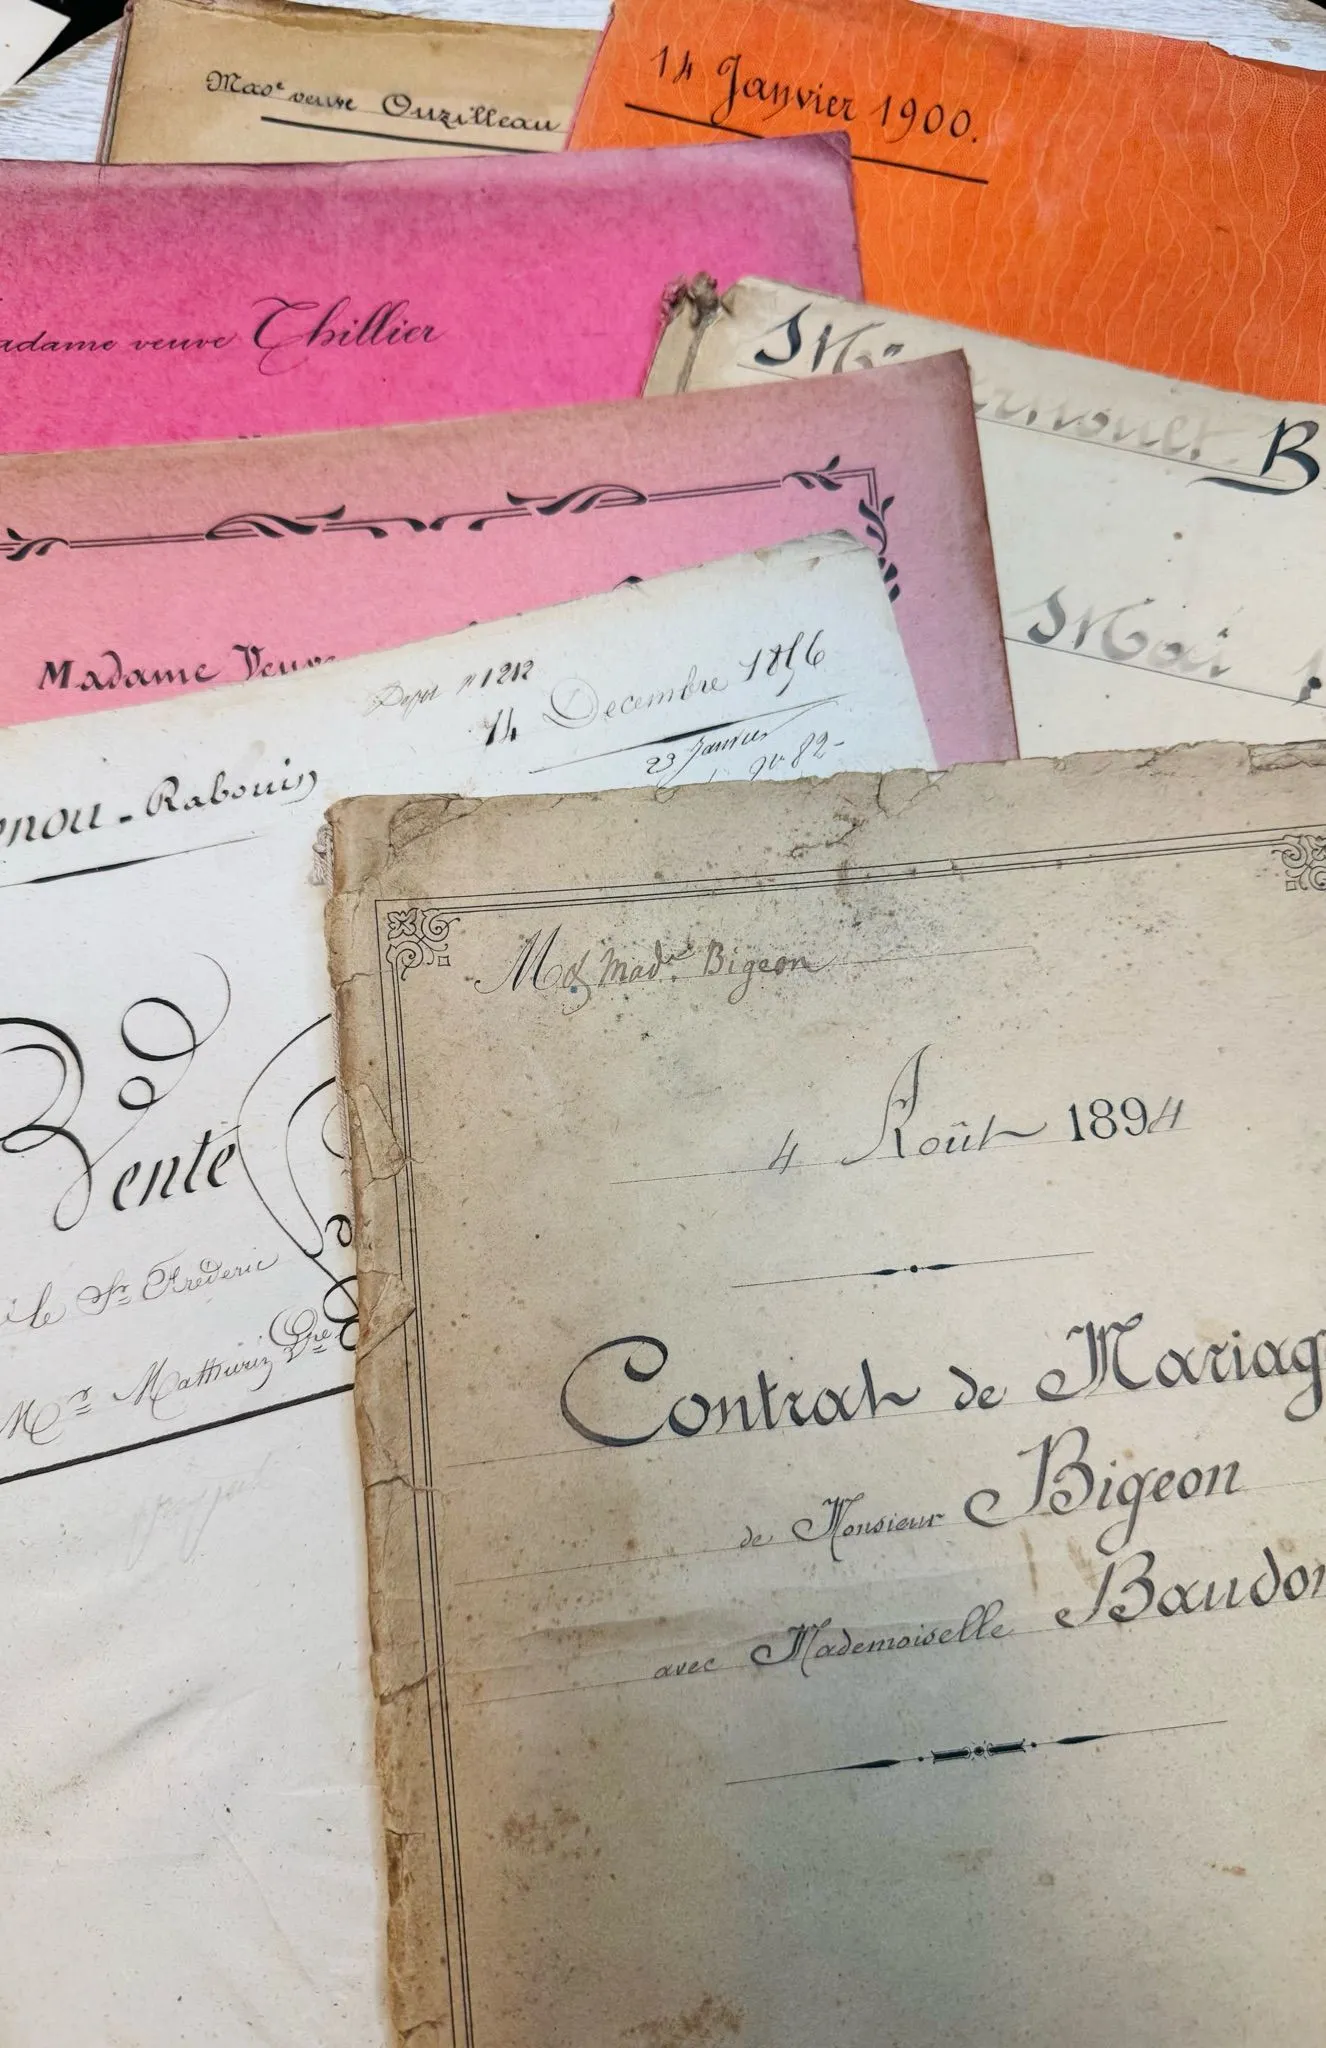 Mad.e veuve Ouzilleau
14 Janvier 1900.
adame veuve Thillier
M
B
Mai 1
Madame Veuve
1212
14 Decembre 1856
23 Janvier
82
nou-Rabouin
Vente
le Sr Frédéric
Mathurin
M & Made Bigeon
4 Août 1894
Contrat de Mariag
de Monsieur Bigeon
avec Mademoiselle Baudon